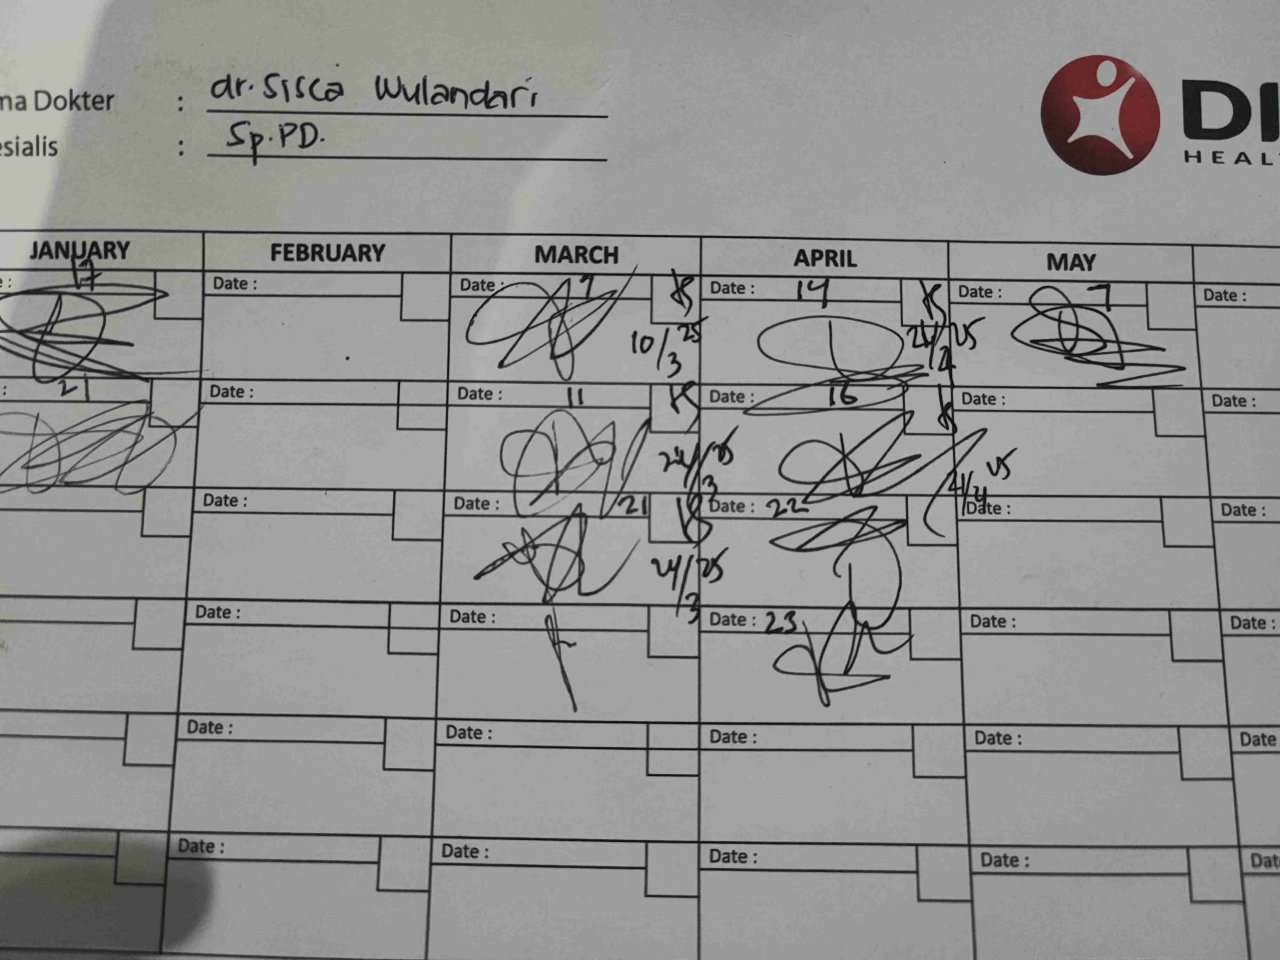 ma Dokter : dr. Sisca Wulandari
esialis : Sp.PD.
DI
HEAL
JANUARY FEBRUARY MARCH APRIL MAY
: 17 Date : Date : 7 Date : 14 Date : 7 Date :
10/3 25
: 21 Date : Date : 11 Date : 16 Date : Date :
24/3 25
Date : Date : 21 Date : 22 Date : Date :
24/3 25
Date : Date : Date : 23 Date : Date :
Date : Date : Date : Date : Date
Date : Date : Date : Date : Dat